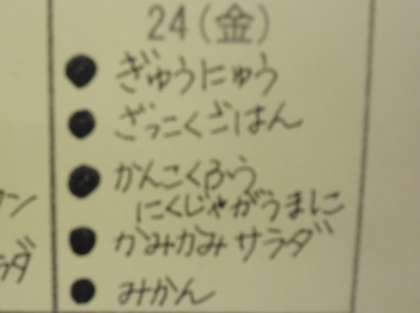 24(金)
ぎゅうにゅう
ざっこくごはん
かんこくふう
にくじゃがうまに
かみかみサラダ
みかん